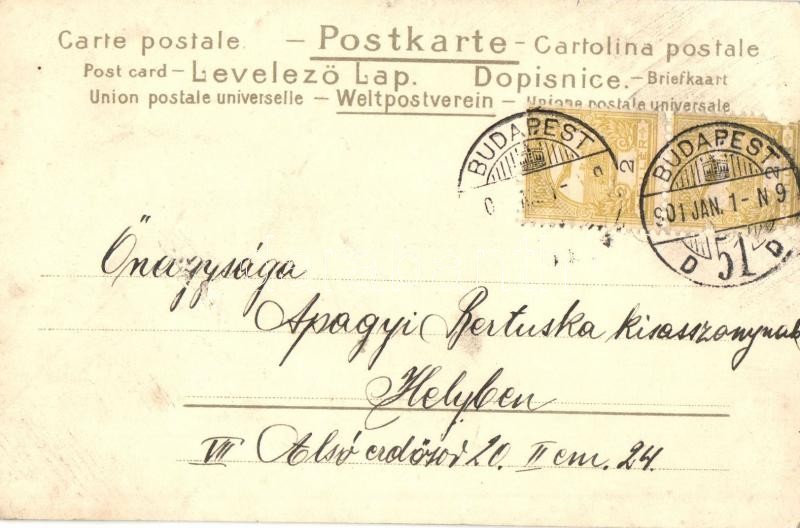 Carte postale — Postkarte - Cartolina postale
Post card — Levelező Lap. Dopisnice. — Briefkaart
Union postale universelle — Weltpostverein — Unione postale universale
BUDAPEST
2
BUDAPEST
2
901 JAN. 1 - N 9
D 51 D
Őnagysága
Apagyi Bertuska kisasszonynak
Helyben
VII Alsó erdősor 20. II em. 24.